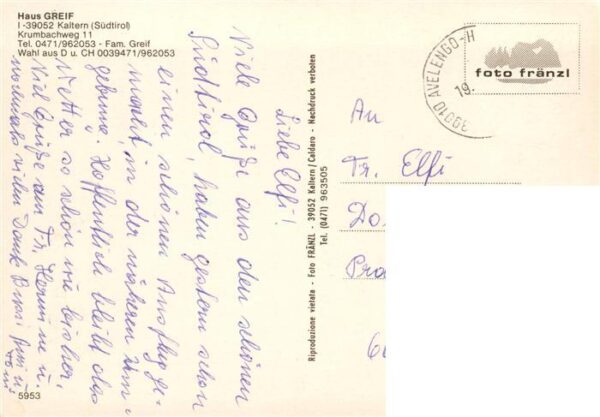 Haus GREIF
I-39052 Kaltern (Südtirol)
Krumbachweg 11
Tel. 0471/962053 - Fam. Greif
Wahl aus D u. CH 0039471/962053
Liebe Elfi!
Viele Grüße aus den schönen
Südtirol, haben gestern schon
einen schönen Ausflug ge-
macht, in der näheren Um-
gebung. Hoffentlich bleibt das
Wetter so schön wie bisher,
Viel Grüße an Fr. Hermine u.
nochmals vielen Dank Bussi u.
Toni
5953
Riproduzione vietata - Foto FRÄNZL - 39052 Kaltern / Caldaro - Nachdruck verboten
Tel. (0471) 963505
39010 AVELENGO-H
19.
foto fränzl
An
Fr. Elfi
Do
Pra